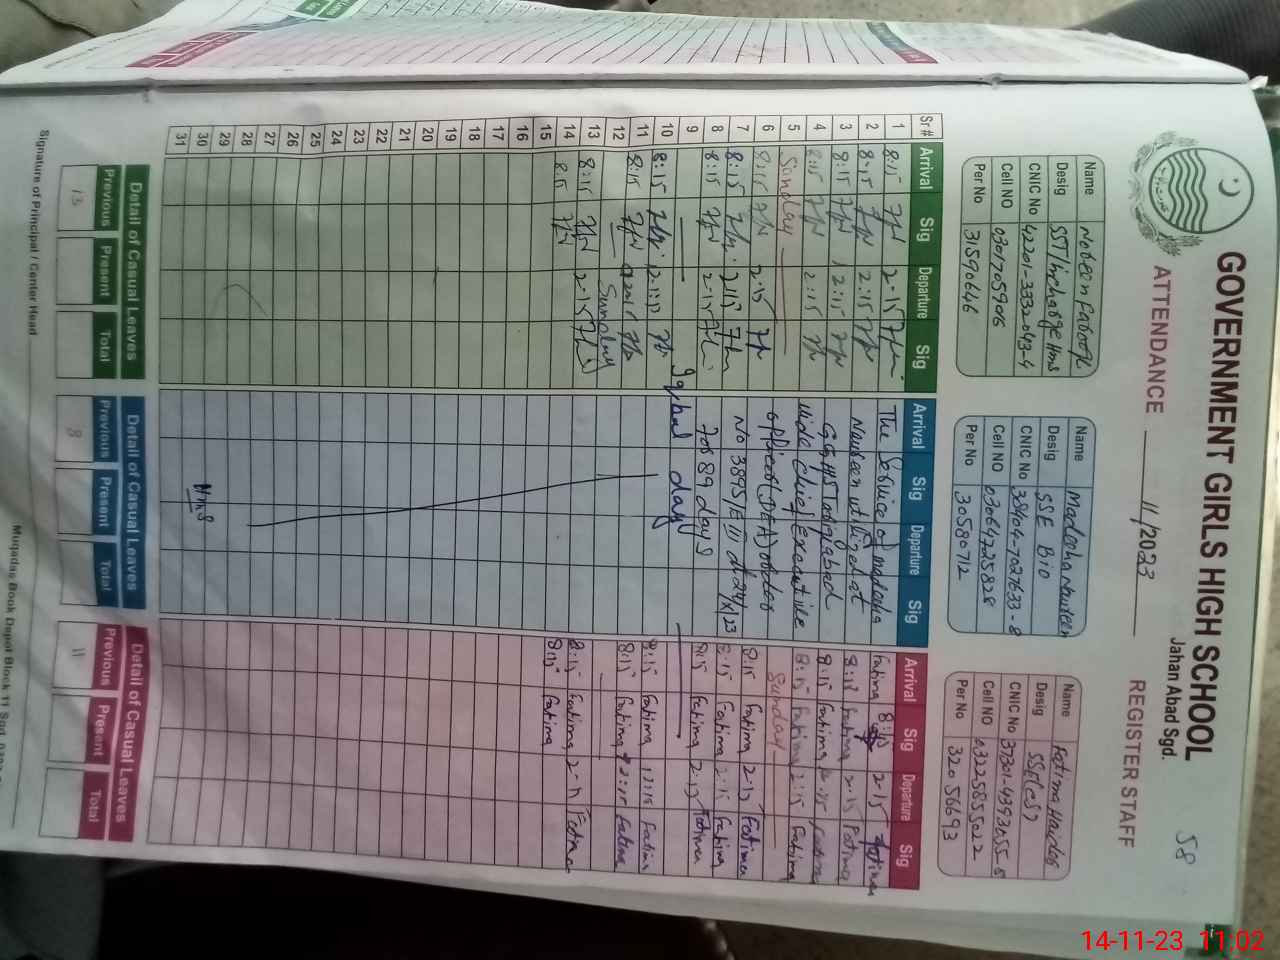 58
GOVERNMENT GIRLS HIGH SCHOOL
Jahan Abad Sgd.
ATTENDANCE 11/2023 REGISTER STAFF
Name Nobeen Farooq
Desig SST/Incharge Hms
CNIC No 42201-3332043-4
Cell NO 03017059016
Per No 31590646
Name Madeeha Nawreen
Desig SSE Bio
CNIC No 38404-7027633-8
Cell NO 03064725828
Per No 30580712
Name Fatima Haider
Desig SSE(CS)
CNIC No 37301-4393055-5
Cell NO 03325855022
Per No 32056693
Sr# Arrival Sig Departure Sig Arrival Sig Departure Sig Arrival Sig Departure Sig
1 8:15 2-15 The Service of madeeha Fatima 8:15 2-15 Fatima
2 8:15 2:15 Nawreen utilized at 8:15 Fatima 2-15 Fatima
3 8:15 12:15 G.G.H/S Tariqabad 8:15 Fatima 12:15 Fatima
4 8:15 2:15 vide chief Executive 8:15 Fatima 2:15 Fatima
5 Sunday officer (DEA) order Sunday
6 8:15 2:15 No 3895/E III dt 24/X/23 8:15 Fatima 2-15 Fatima
7 8:15 2:15 for 89 days 8:15 Fatima 2:15 Fatima
8 8:15 2-15 8:15 Fatima 2-15 Fatima
9 Iqbal day
10 8:15 8:15 Fatima 12:15 Fatima
11 8:15 8:15 Fatima 2:15 Fatima
12 Sunday
13 8:15 2-15 8:15 Fatima 2-15 Fatima
14 8:15 8:15 Fatima
15
16
17
18
19
20
21
22
23
24
25
26
27
28
29
30
31
Detail of Casual Leaves Detail of Casual Leaves Detail of Casual Leaves
Previous Present Total Previous Present Total Previous Present Total
13 8 11
Signature of Principal / Center Head
Muqadas Book Depot Block 11 Sgd.
14-11-23 11.02